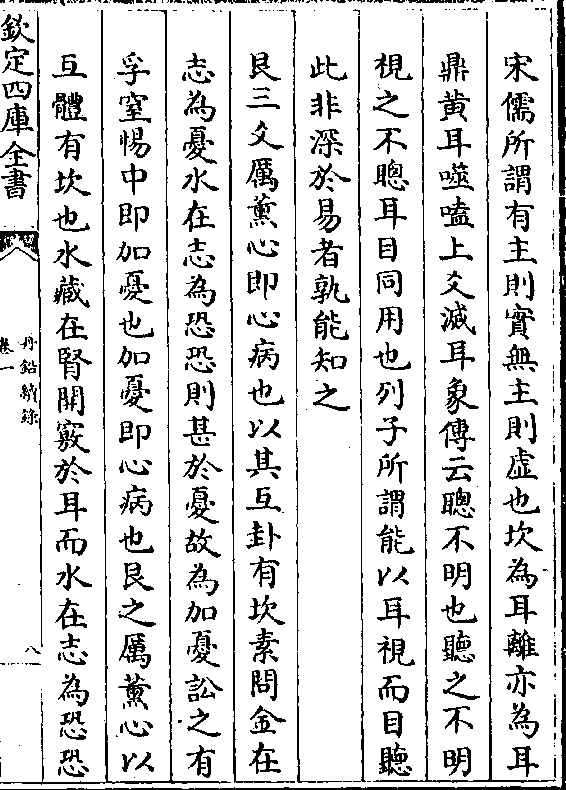 宋儒所謂有主則實無主則虛也坎為耳離亦為耳
鼎黃耳噬嗑上爻滅耳象傳云聰不明也聽之不明
視之不聰耳目同用也列子所謂能以耳視而目聽
此非深於易者孰能知之
艮三爻厲薰心即心病也以其互卦有坎素問金在
志為憂水在志為恐恐則甚於憂故為加憂訟之有
孚窒惕中即加憂也加憂即心病也艮之厲薰心以
互體有坎也水藏在腎開竅於耳而水在志為恐恐
欽定四庫全書
丹鉛續錄
卷一
八